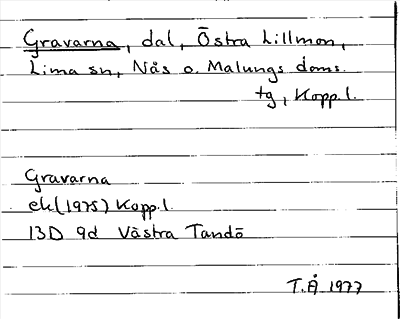 Gravarna, dal, Östra Lillmon,
Lima sn, Nås o. Malungs doms.
tg, Kopp. l.
Gravarna
ek (1975) Kopp. l.
13D 9d Västra Tandö
T.Å 1977